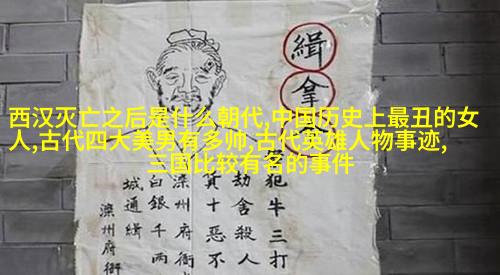 西汉灭亡之后是什么朝代,中国历史上最丑的女
人,古代四大美男有多帅,古代英雄人物事迹,
三国比较有名的事件
緝拿
犯牛三打
劫舍殺人
其十惡不
滦州府衙
白銀千兩
城通緝
滦州府衙